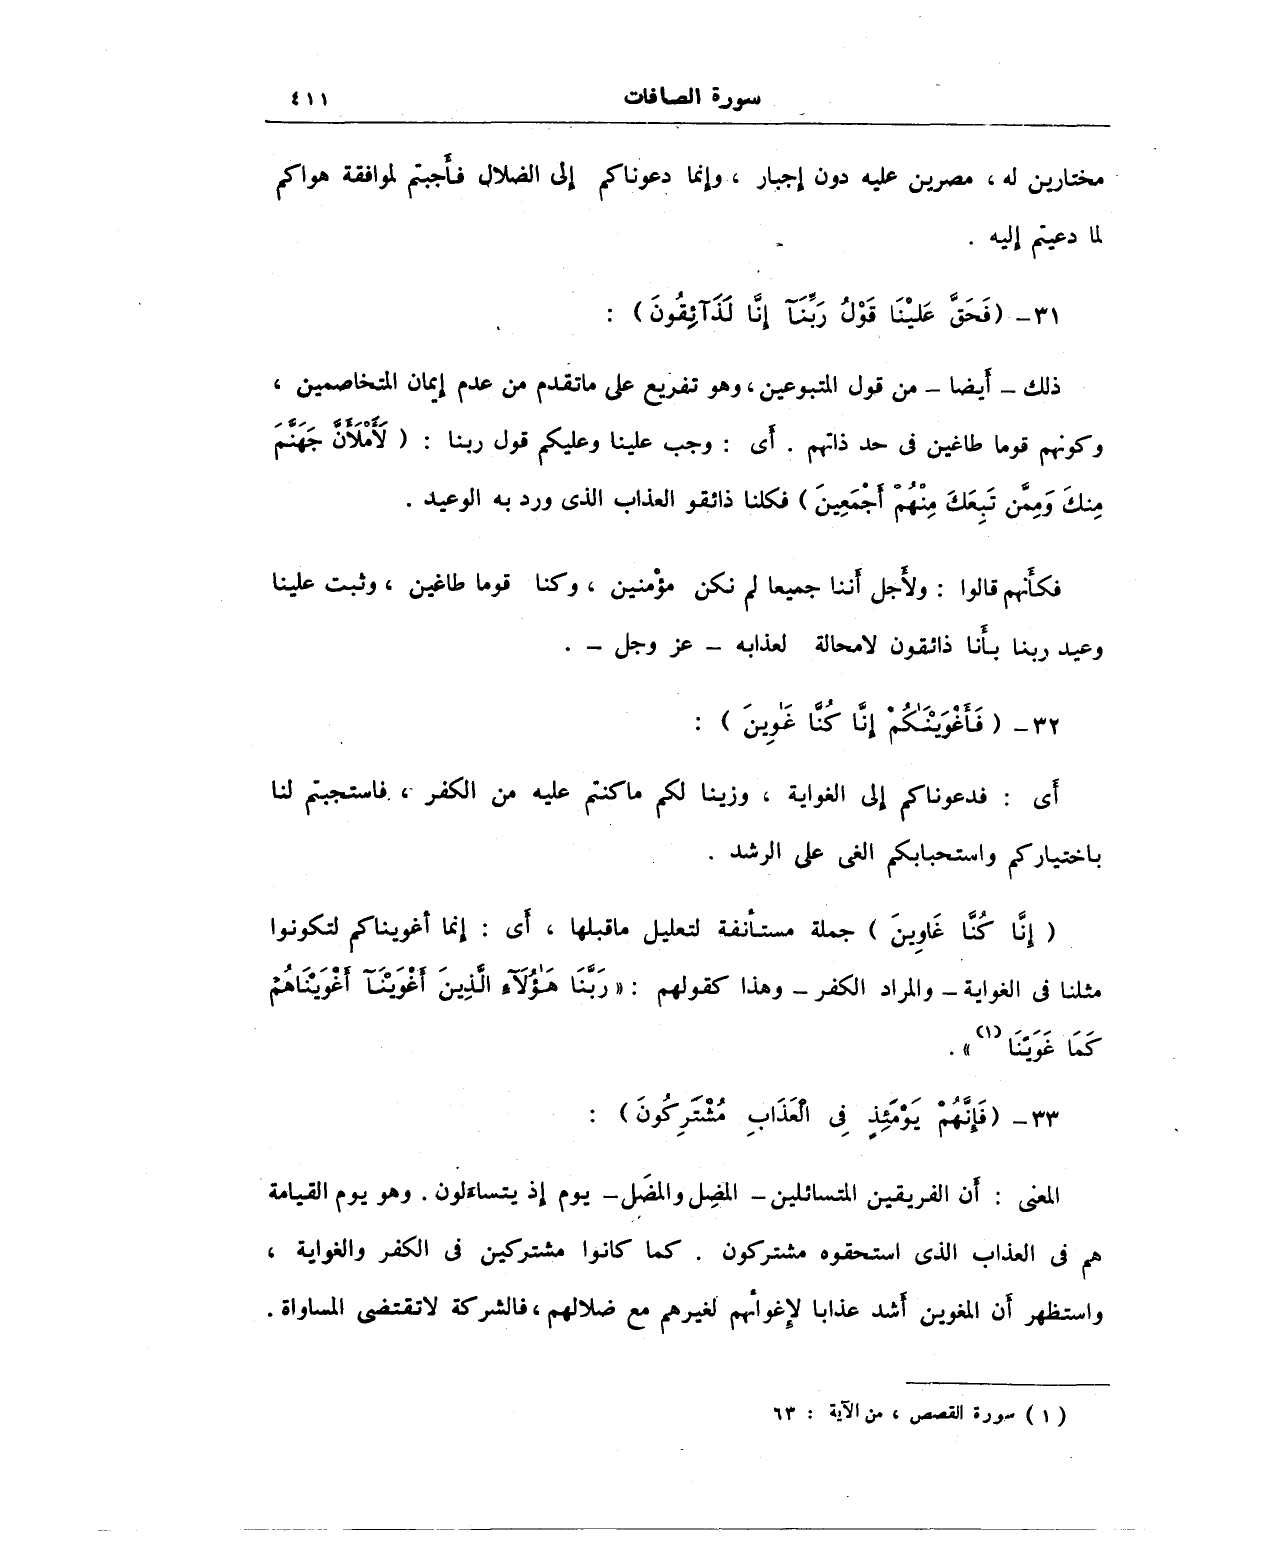 سورة الصافات ٤١١
مختارين له ، مصرين عليه دون إجبار ، وإنما دعوناكم إلى الضلال فأجبتم لموافقة هواكم
لما دعيتم إليه .
٣١ – (فَحَقَّ عَلَيْنَا قَوْلُ رَبِّنَآ إِنَّا لَذَآئِقُونَ) :
ذلك – أيضا – من قول المتبوعين ، وهو تفريع على ماتقدم من عدم إيمان المتخاصمين ،
وكونهم قوما طاغين فى حد ذاتهم . أى : وجب علينا وعليكم قول ربنا : ( لَأَمْلَأَنَّ جَهَنَّمَ
مِنكَ وَمِمَّن تَبِعَكَ مِنْهُمْ أَجْمَعِينَ) فكلنا ذائقو العذاب الذى ورد به الوعيد .
فكأنهم قالوا : ولأجل أننا جميعا لم نكن مؤمنين ، وكنا قوما طاغين ، وثبت علينا
وعيد ربنا بأنا ذائقون لامحالة لعذابه – عز وجل – .
٣٢ – ( فَأَغْوَيْنَـٰكُمْ إِنَّا كُنَّا غَـٰوِينَ ) :
أى : فدعوناكم إلى الغواية ، وزينا لكم ماكنتم عليه من الكفر ، فاستجبتم لنا
باختياركم واستحبابكم الغى على الرشد .
( إِنَّا كُنَّا غَاوِينَ ) جملة مستأنفة لتعليل ماقبلها ، أى : إنما أغويناكم لتكونوا
مثلنا فى الغواية – والمراد الكفر – وهذا كقولهم : « رَبَّنَا هَـٰؤُلَآءِ الَّذِينَ أَغْوَيْنَآ أَغْوَيْنَاهُمْ
كَمَا غَوَيْنَا (١) » .
٣٣ – (فَإِنَّهُمْ يَوْمَئِذٍ فِى الْعَذَابِ مُشْتَرِكُونَ) :
المعنى : أن الفريقين المتسائلين – المضِل والمضَل – يوم إذ يتساءلون . وهو يوم القيامة
هم فى العذاب الذى استحقوه مشتركون . كما كانوا مشتركين فى الكفر والغواية ،
واستظهر أن المغوين أشد عذابا لإغوائهم لغيرهم مع ضلالهم ، فالشركة لاتقتضى المساواة .
( ١ ) سورة القصص ، من الآية : ٦٣